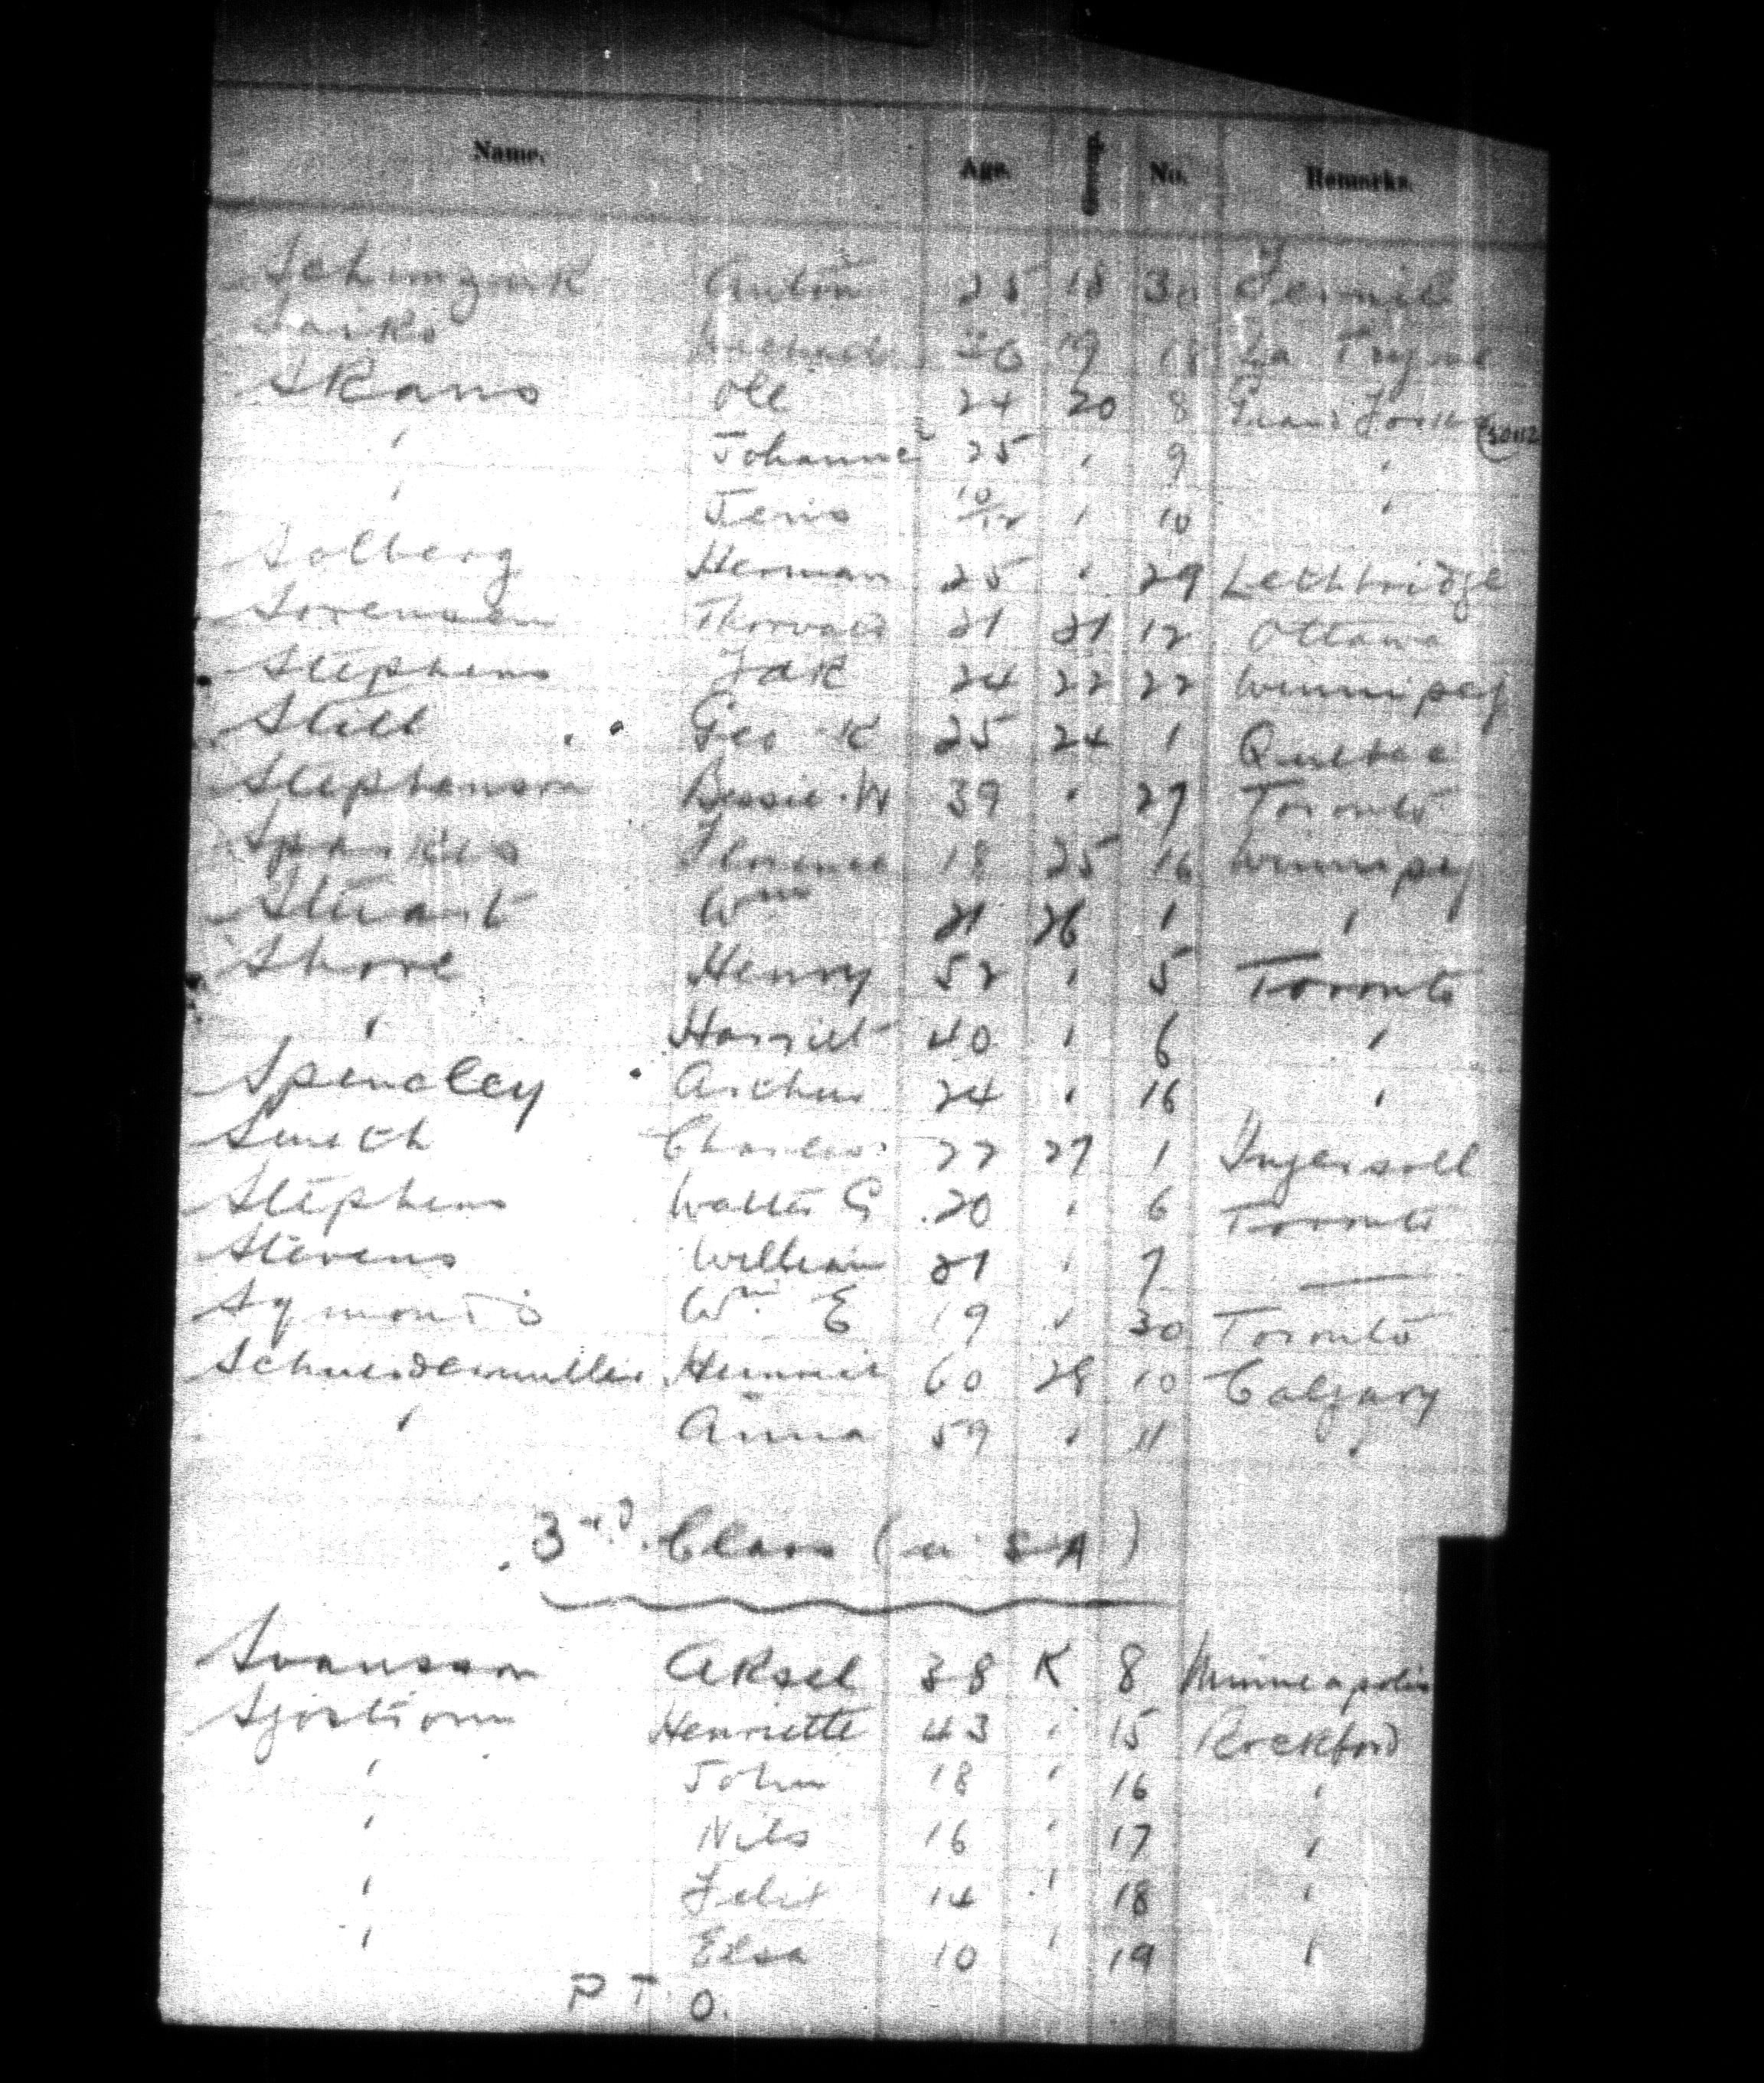 Name. Age. No. Remarks.
Anton 25 18 30
26 19 18 La
Skans Ole 24 20 8 Grand Forks
" Johanne 25 " 9 "
" Jens 10/12 " 10 "
Solberg Herman 25 " 29 Lethbridge
Sorensen Thorvald 21 21 12 Ottawa
Stephens Jak 24 22 22 Winnipeg
Still Geo K 25 24 1 Quebec
Stephenson Bessie W 39 " 27 Toronto
Sparkes Florence 18 25 16 Winnipeg
Stuart Wm 21 26 1 "
Shore Henry 52 " 5 Toronto
" Harriet 40 " 6 "
Spencley Arthur 24 " 16 "
Smith Charles 22 27 1 Ingersoll
Stephens Walter G 20 " 6 Toronto
Stevens William 21 " 7 —
Symonds Wm E 19 " 30 Toronto
60 28 10 Calgary
" Anna 59 " 11 "
3rd Class (U S A)
Svansson Aksel 38 K 8 Minneapolis
Sjostrom Henriette 43 " 15 Rockford
" John 18 " 16 "
" Nils 16 " 17 "
" 14 " 18 "
" Elsa 10 " 19 "
P T O.